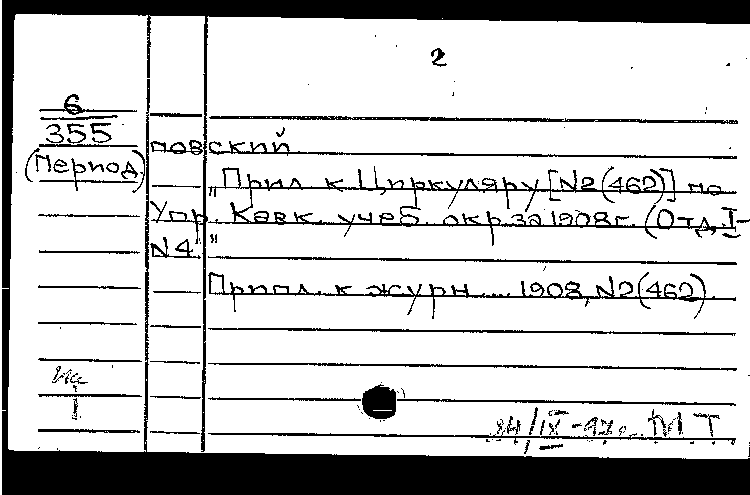 2
6
355
(Период)
повский.
„Прил. к Циркуляру [N2(462)] по
Упр. Кавк. учеб. окр. за 1908г. (Отд. I-
N4"
Прил. к журн.... 1908, N2(462).
/IX-97г. М.Т.